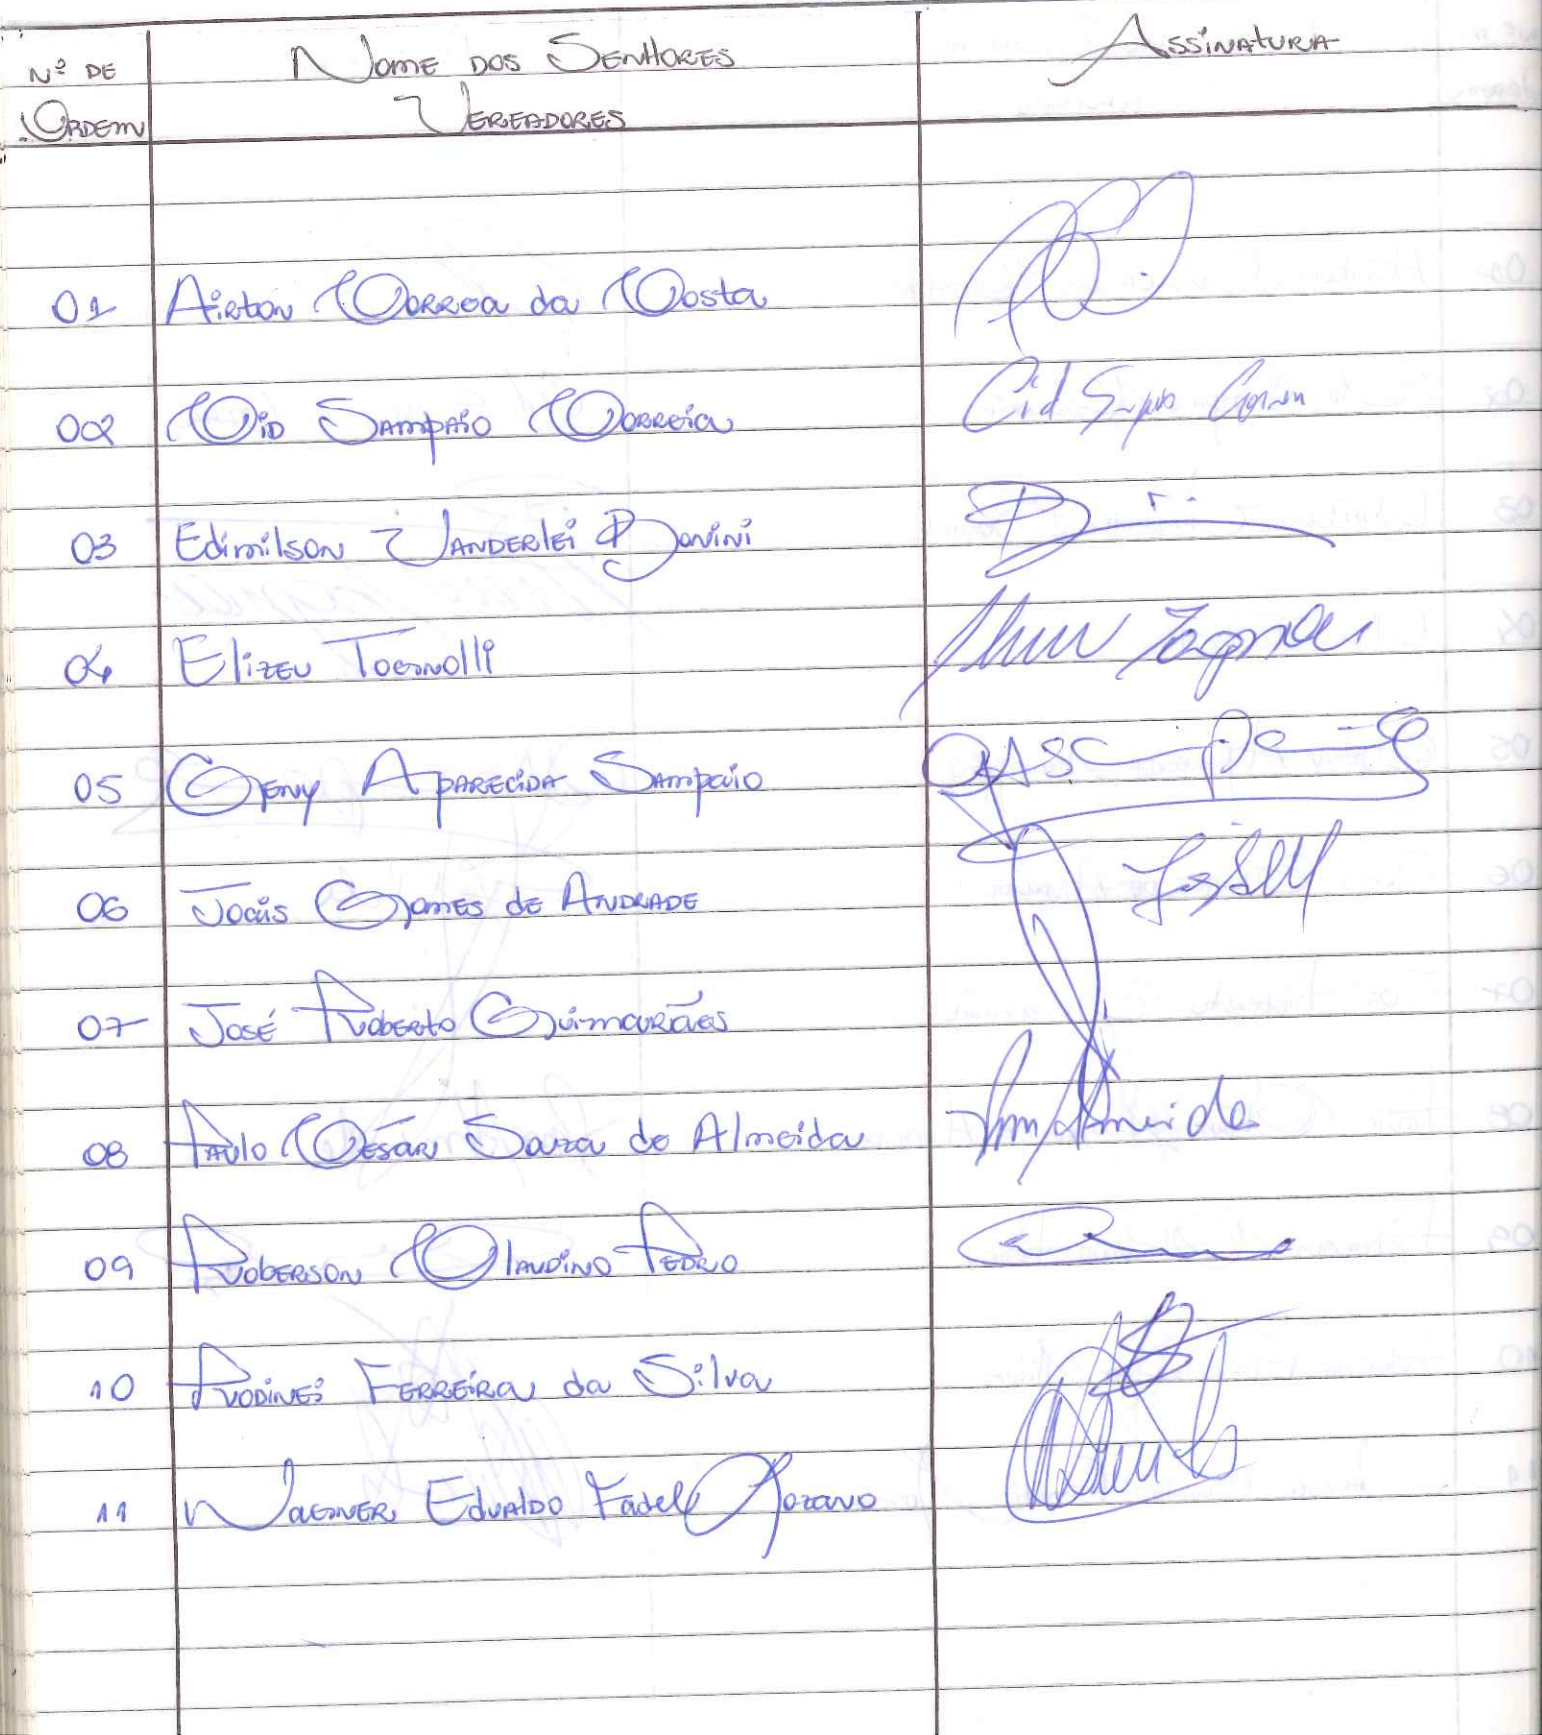 Nº DE
ORDEM
NOME DOS SENHORES
VEREADORES
ASSINATURA
01 Airton Correa da Costa
02 Cid Sampaio Correia Cid Sampaio Correia
03 Edimilson Vanderlei Bonini
04 Elizeu Tognolli
05 Geny Aparecida Sampaio
06 Jocás Gomes de Andrade
07 José Roberto Guimarães
08 Paulo César Souza de Almeida Almeida
09 Roberson Claudino Pedro
10 Rodinei Ferreira da Silva
11 Wagner Edvaldo Fadel Lozano